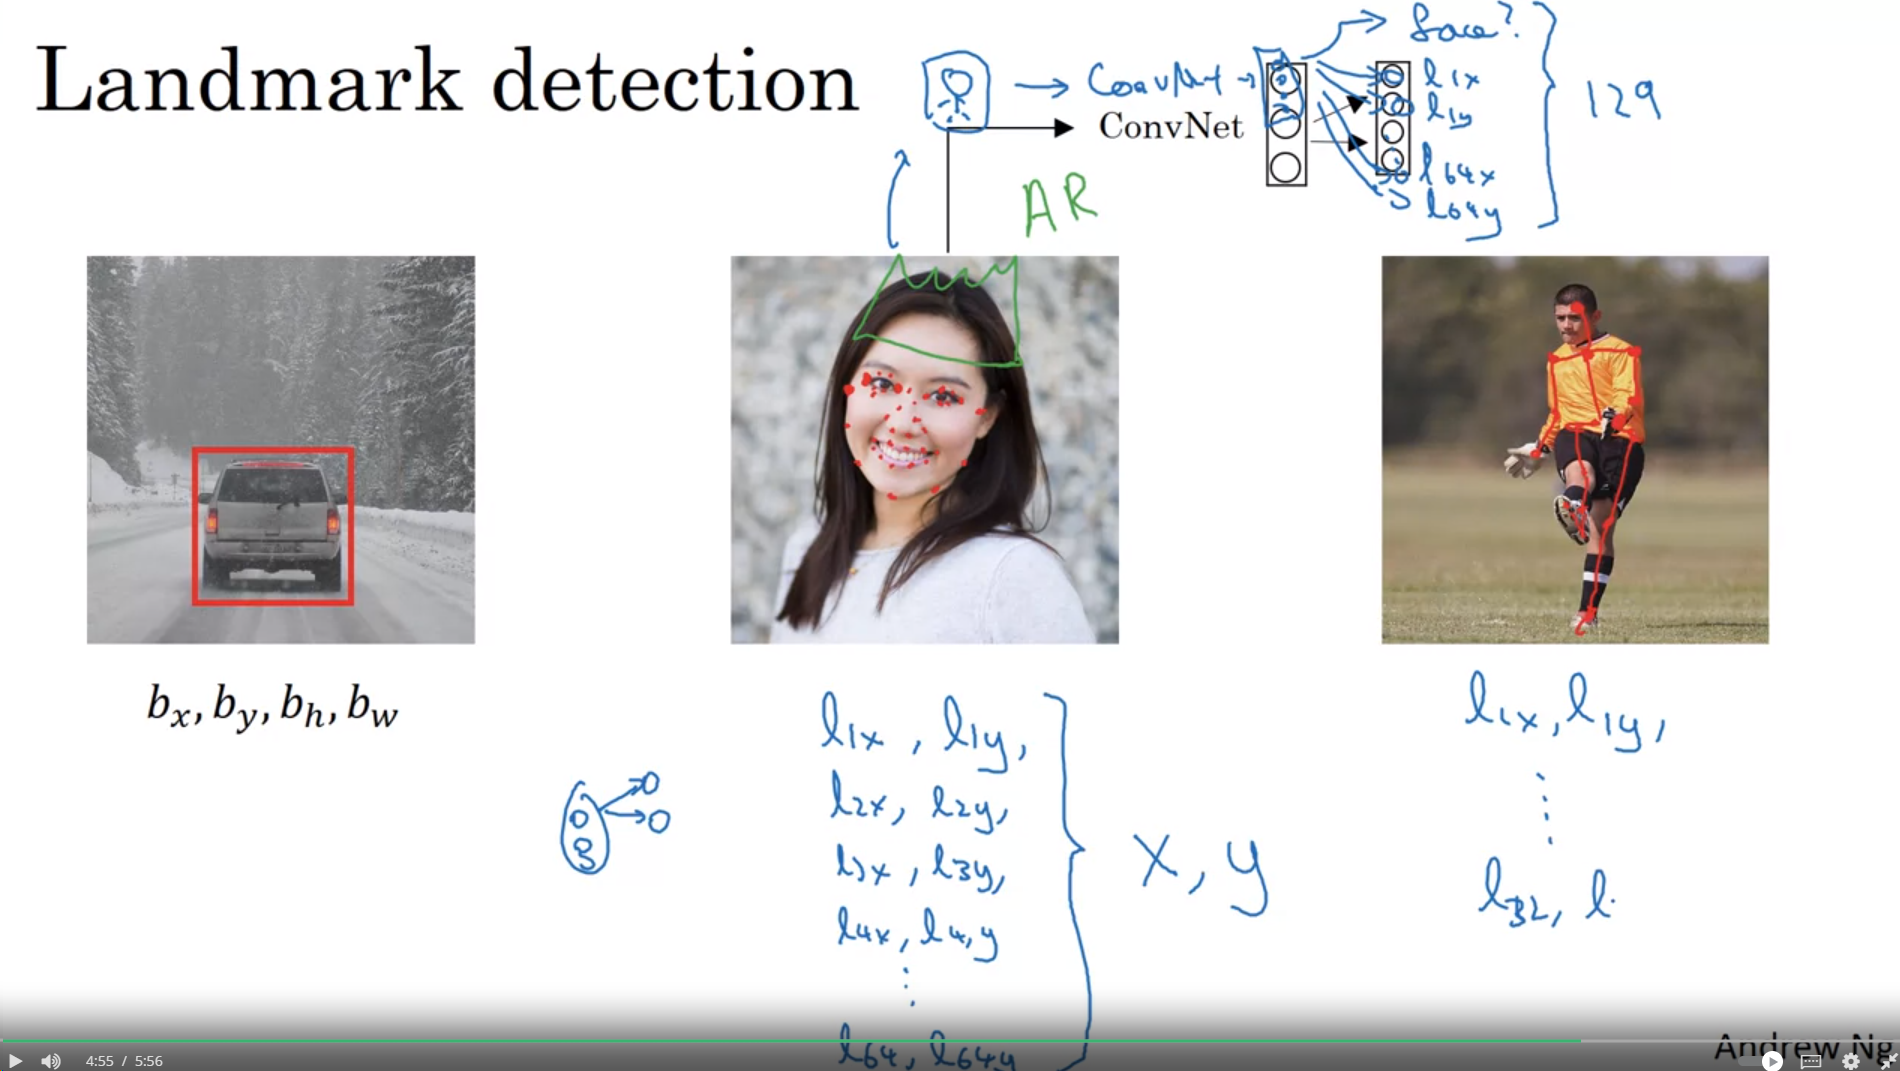 Landmark detection
face?
ConvNet
l1x
l1y
l64x
l64y
129
ConvNet
AR
bx, by, bh, bw
l1x, l1y,
l2x, l2y,
l3x, l3y,
l4x, l4,y
⋮
l64, l64y
x, y
l1x, l1y,
⋮
l32, l
Andrew Ng
4:55 / 5:56